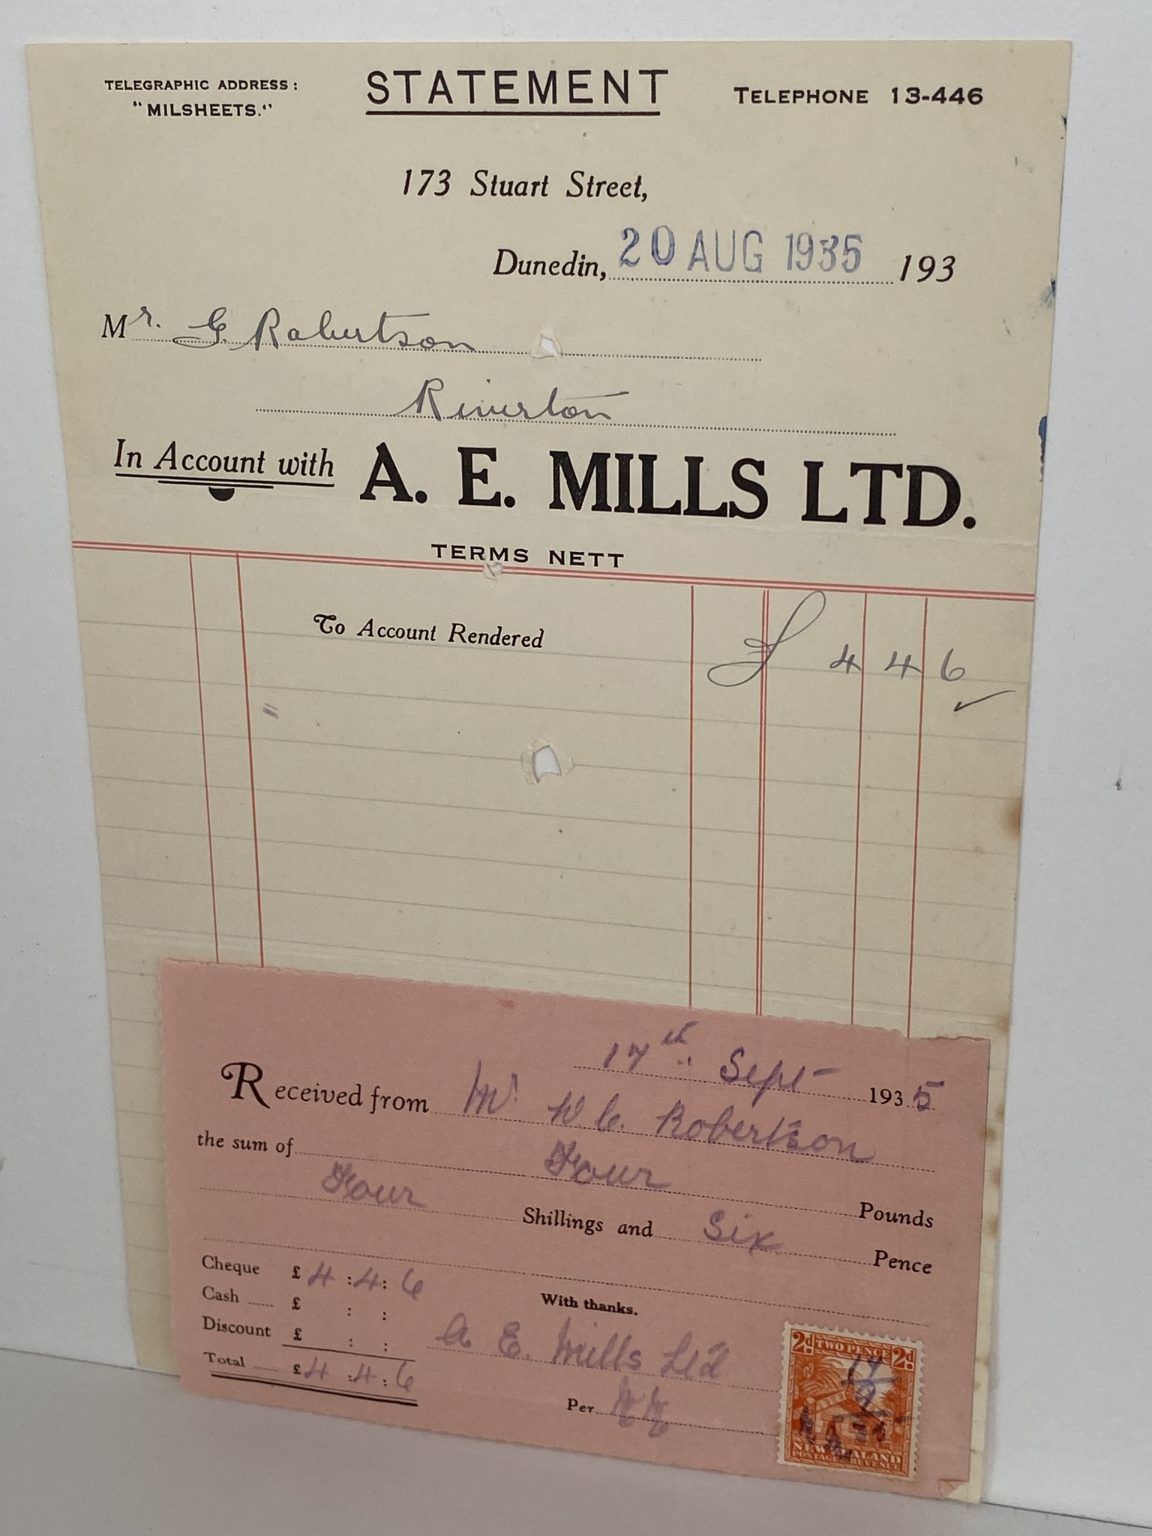 TELEGRAPHIC ADDRESS: STATEMENT TELEPHONE 13-446
"MILSHEETS."
173 Stuart Street,
Dunedin, 20 AUG 1935 193
Mr. G. Robertson
Riverton
In Account with A. E. MILLS LTD.
TERMS NETT
To Account Rendered £ 4 4 6
17th Sept 1935
Received from Mr W C. Robertson
the sum of Four Pounds
Four Shillings and Six Pence
Cheque £ 4 : 4 : 6
Cash £ : : With thanks.
Discount £ : : A E. Mills Ltd
Total £ 4 : 4 : 6
Per
2d TWO PENCE 2d
17
9
35
NEW ZEALAND
POSTAGE & REVENUE